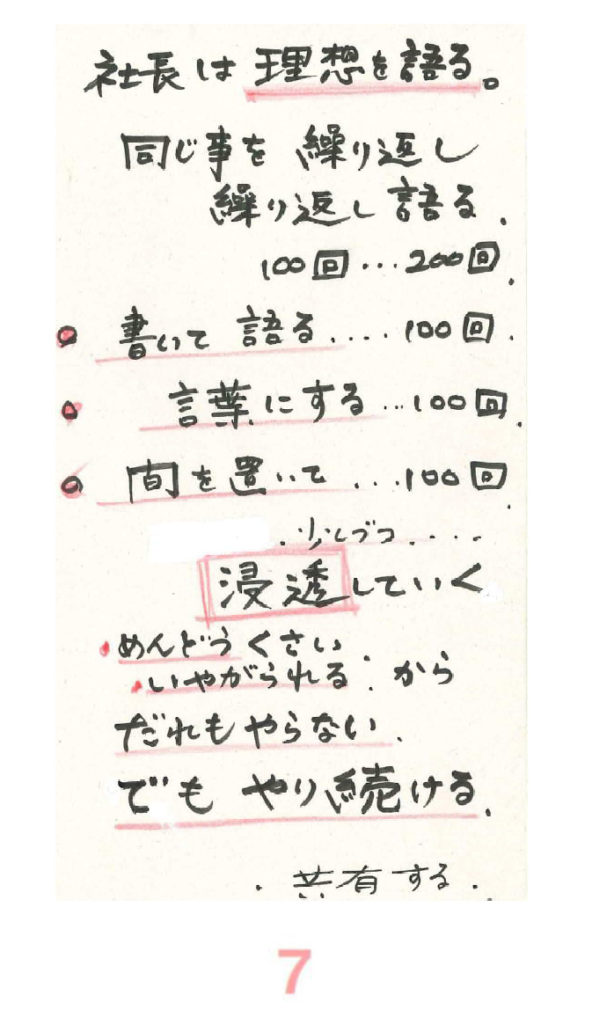 社長は理想を語る。
同じ事を繰り返し
繰り返し語る.
100回...200回.
書いて語る....100回.
言葉にする...100回.
間を置いて...100回.
.少しづつ....
浸透していく
・めんどうくさい.
・いやがられる. から
だれもやらない.
でもやり続ける.
.共有する.
7